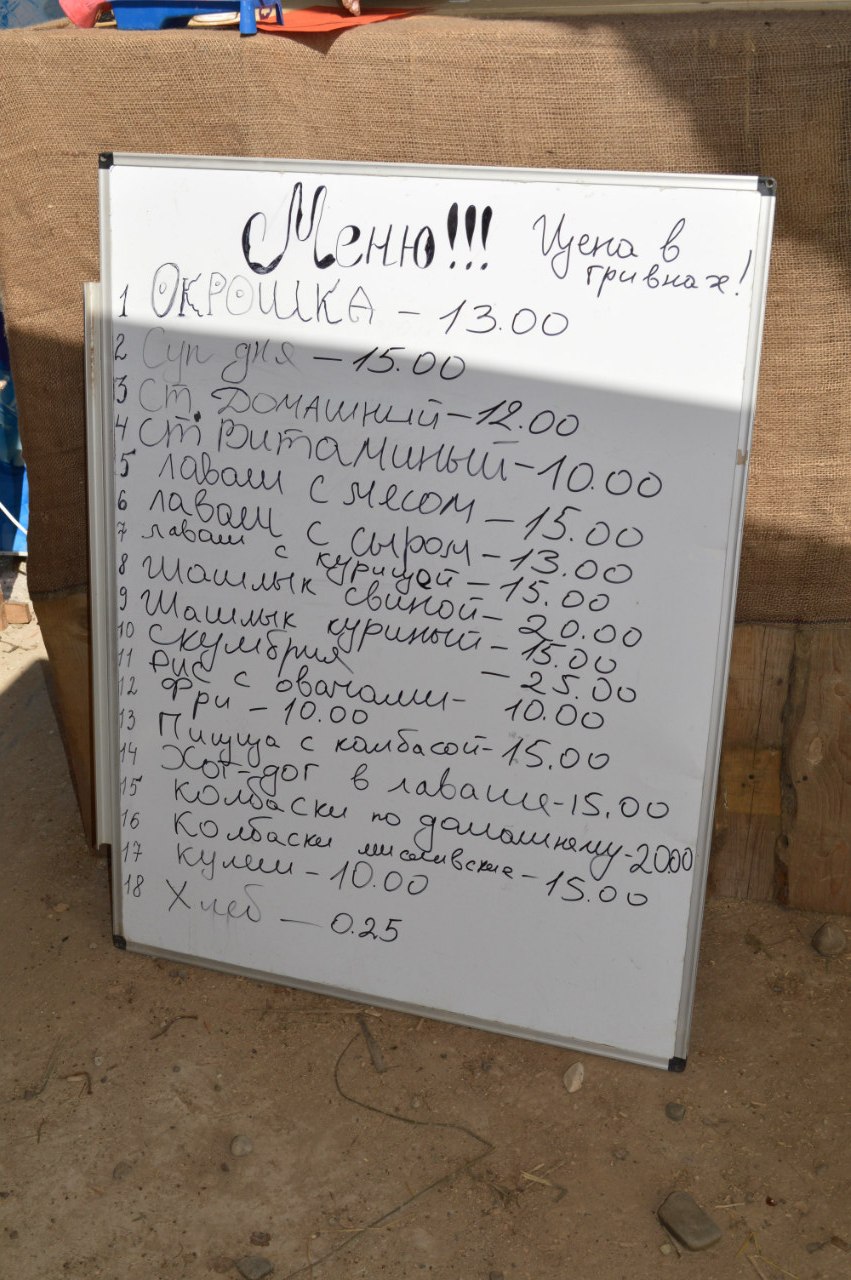 Меню!!! Цена в
гривнах!
1 ОКРОШКА - 13.00
2 Суп дня - 15.00
3 Ст. Домашний - 12.00
4 Ст. Витаминый - 10.00
5 лаваш с мясом - 15.00
6 лаваш с сыром - 13.00
7 лаваш с курицей - 15.00
8 Шашлык свиной - 20.00
9 Шашлык куриный - 15.00
10 Скумбрия - 25.00
11 Рис с овачами - 10.00
12 Фри - 10.00
13 Пицца с колбасой - 15.00
14 Хот-дог в лаваше - 15.00
15 Колбаски по домашнему - 20.00
16 Колбаски мисливские - 15.00
17 Кулеш - 10.00
18 Хлеб - 0.25